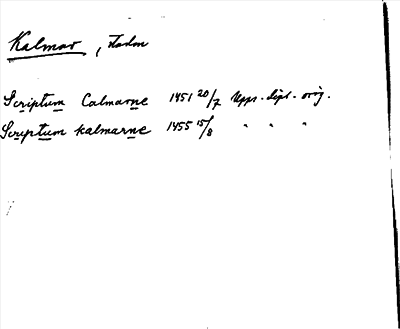 Kalmar, staden
Scriptum Calmarne 1451 20/7 Upps. dipl. orig.
Scriptum Kalmarne 1455 15/8 " " "